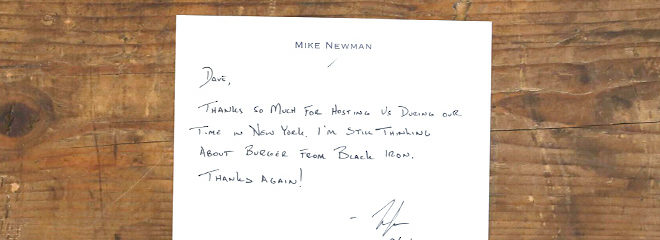 MIKE NEWMAN
DAVE,
THANKS SO MUCH FOR HOSTING US DURING OUR
TIME IN NEW YORK. I'M STILL THINKING
ABOUT BURGER FROM BLACK IRON.
THANKS AGAIN!